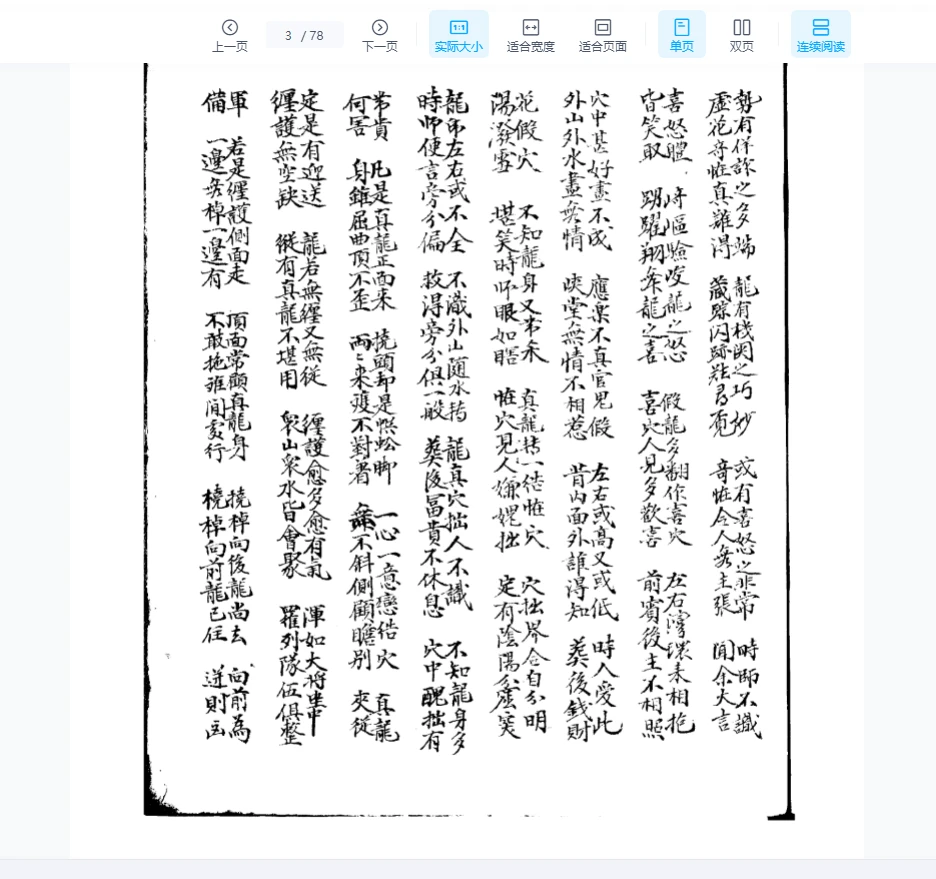 上一页
3 / 78
下一页
实际大小
适合宽度
适合页面
单页
双页
连续阅读
勢有佯詐之多端 龍有棧閃之巧妙 或有喜怒之非常 時師不識
虛花奇怪真難得 藏踪闪跡難尋覓 奇怪令人無主張 聞余大言
喜怒體 崎嶇險峻龍之怒 假龍多翻作喜穴 左右灣環来相抱
皆笑取 踴躍翔奔龍之喜 喜穴人見多歡喜 前賓後主不相照
穴中甚好盡不成 應樂不真官鬼假 左右或高又或低 時人愛此
外山外水盡無情 暎堂無情不相惹 昔内面外誰得知 葬後錢財
花假穴 不知龍身又帶杀 真龍转一结怪穴 穴拙界合自分明
湯潑雪 堪笑時师眼如瞎 怪穴見人嫌媿拙 定有陰陽分虛实
龍虎左右或不全 不識外山随水转 龍真穴拙人不識 不知龍身多
時师便言旁分偏 救得旁分俱一般 葬後富貴不休息 穴中醜拙有
常貴 凡是真龍正面来 撓頭却是蜈蚣脚 一心一意戀结穴 真龍
何害 身雖屈曲顶不歪 両〻来 不對着 無不斜側顧瞻别 夾從
定是有迎送 龍若無纏又無從 纏護愈多愈有氣 渾如大将坐中
纏護無空缺 縱有真龍不堪用 衆山衆水皆會聚 羅列隊伍俱整
軍 若是纏護側面走 頂面常顧真龍身 撓棹向後龍尚去 向前為
備 一邊無棹一邊有 不敢拖離闲處行 橈棹向前龍已住 逆則凶